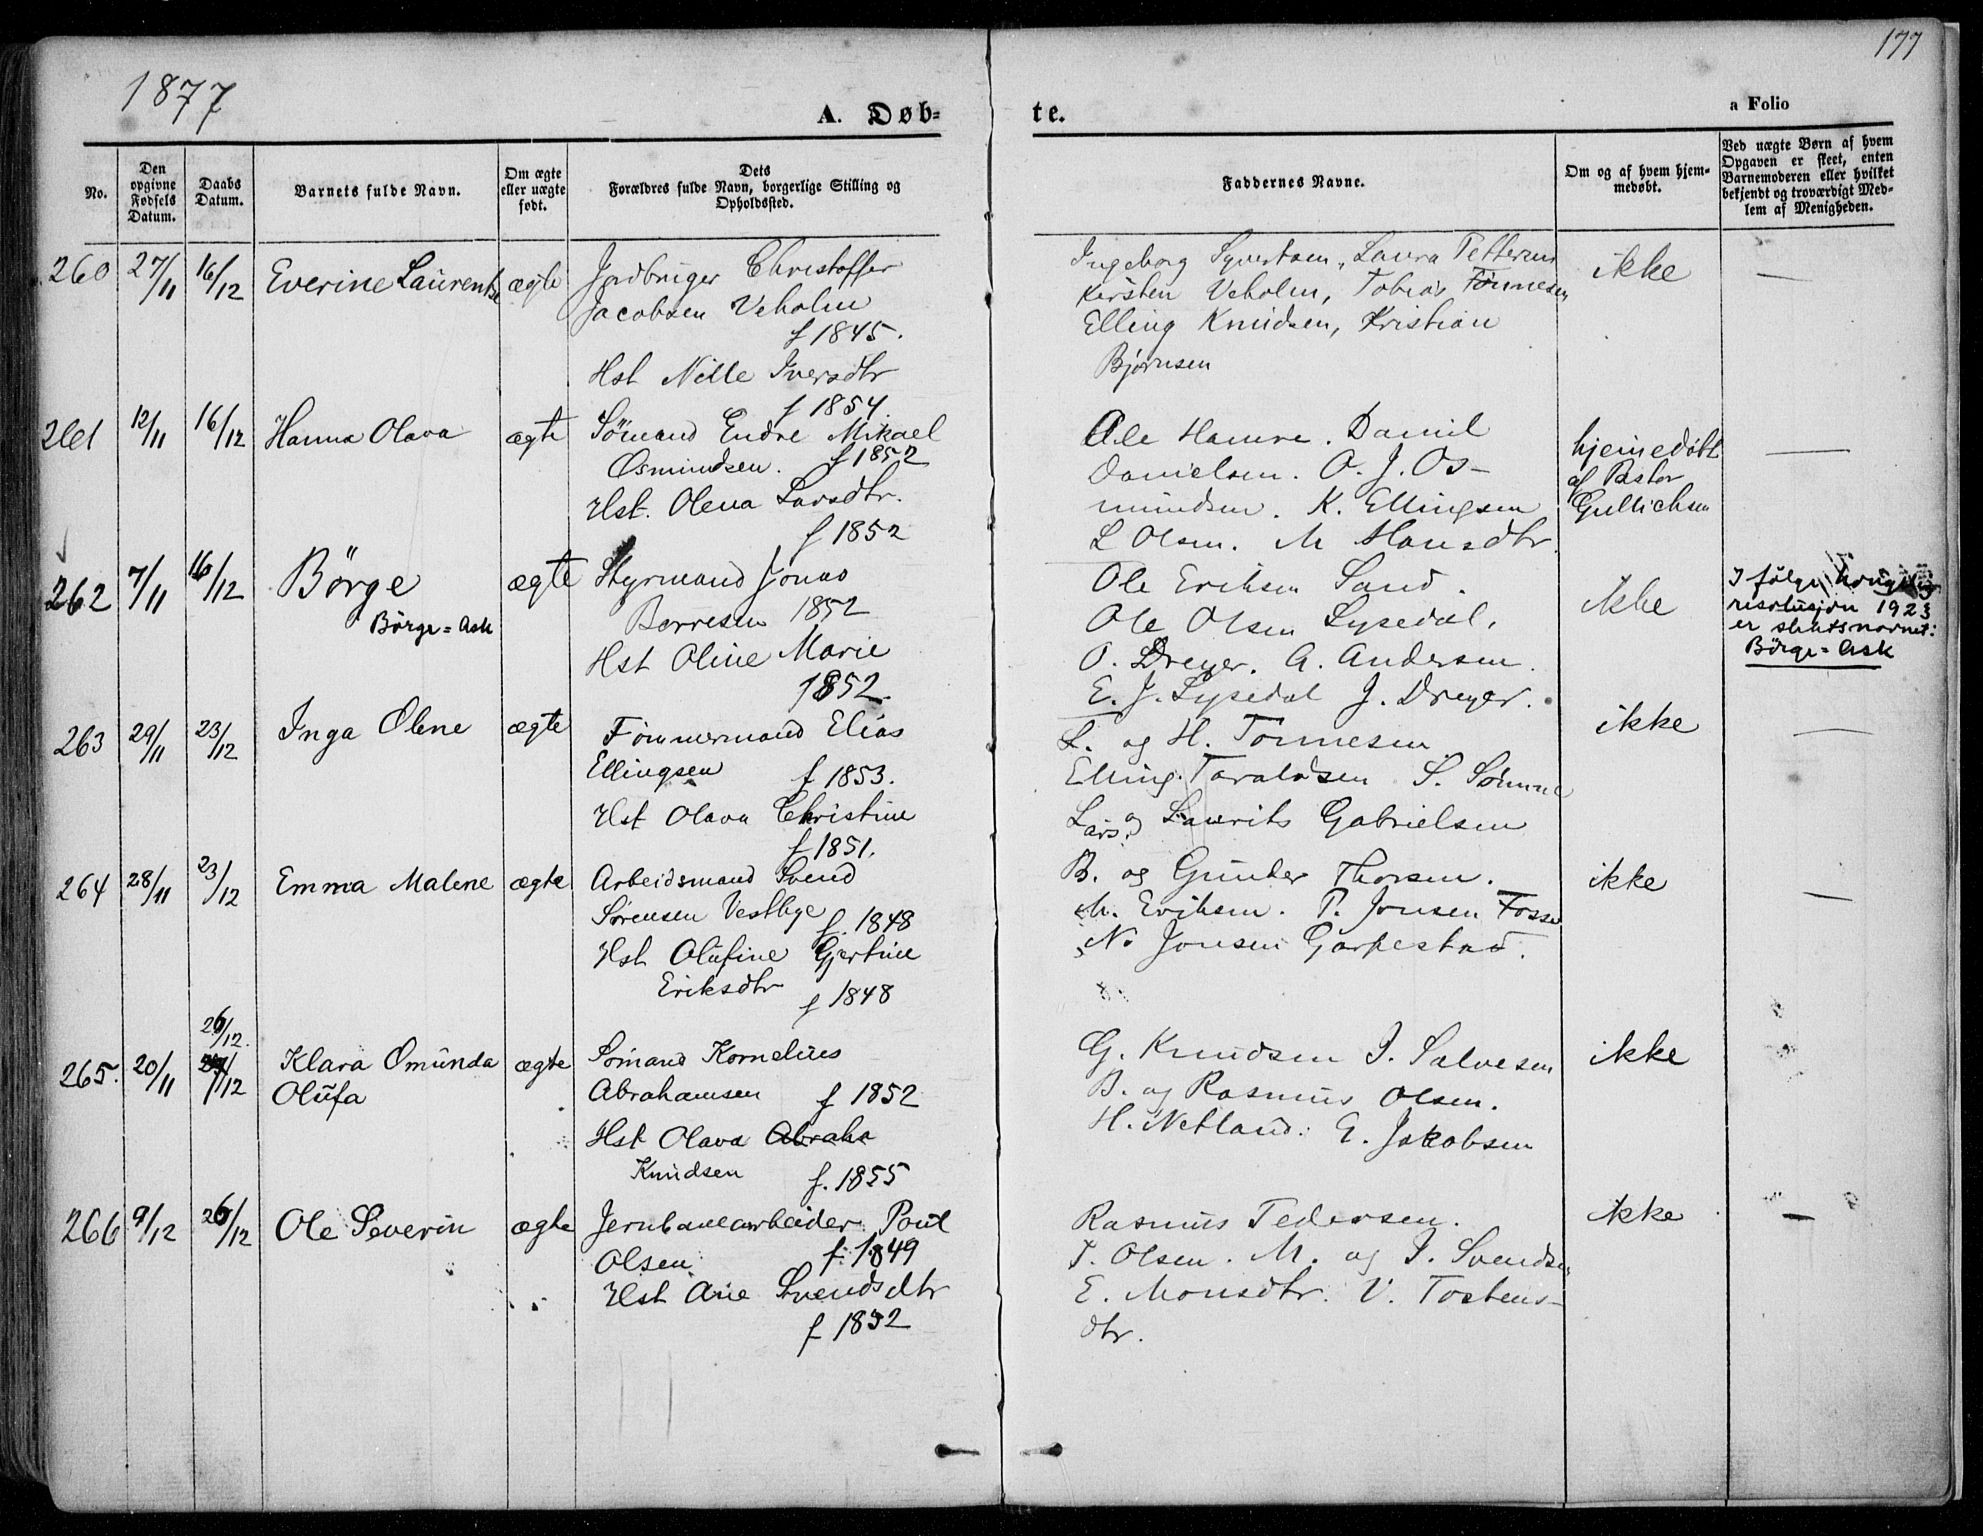 177
1877
A. Døb=
te.
a Folio
No.
Den opgivne Fødsels Datum.
Daabs Datum.
Barnets fulde Navn.
Om ægte eller uægte født.
Dets Forældres fulde Navn, borgerlige Stilling og Opholdssted.
Faddernes Navne.
Om og af hvem hjemmedøbt.
Ved uægte Børn af hvem Opgaven er skeet, enten Barnemoderen eller hvilket bekjendt og troværdigt Medlem af Menigheden.
260 27/11 16/12 Everine Laurentse ægte Jordbruger Christoffer
Jacobsen Veholm
f 1845.
Hst Nille Iversdtr
f 1854.
Ingeborg Syvertsen, Laura
Kirsten Veholm, Tobias Tønnesen
Elling Knudsen, Kristian
Bjørnsen
ikke —
261 12/11 16/12 Hanna Olava ægte Sömand Endre Mikael
Osmundsen. f 1852
Hst. Olena Larsdtr.
f 1852
Ole Hamre. Daniel
Danielsen. O. J. Os-
mundsen. K. Ellingsen
L Olsen. M Hansdtr.
hjemedöbt
af Pastor
Gullichsen
—
262 7/11 16/12 Börge ægte Styrmand Jonas
Börge=Ask
Borresen 1852
Hst Oline Marie
1852.
Ole Eriksen Sand.
Ole Olsen Lysedal.
O. Dreyer. A. Andersen.
E. J. Lysedal J. Dreyer.
ikke
I følge kongelig
resolusjon 1923
er slektsnavnet:
Börge=Ask
263 29/11 23/12 Inga Olene ægte Tömmermand Elias
Ellingsen f 1853.
Hst Olava Christine
f 1851.
L. og H. Tönnesen
Elling Taraldsen S.
Lars og Laurits Gabrielsen
ikke —
264 28/11 23/12 Emma Malene ægte Arbeidsmand Svend
Sörensen Vestbye f. 1848
Hst Olufine Gjertine
Eriksdtr f 1848
B. og Gunder Thorsen.
M. Eriksen. P. Jonsen Fosse
N. Jonsen Garpestad.
ikke —
26/12.
265. 20/11 /12 Klara Omunda ægte Sömand Kornelius
Olufa
Abrahamsen f 1852
Hst Olava Abraha
Knudsen f. 1855
G. Knudsen I. Salvesen
B. og Rasmus Olsen.
H. Netland. E. Jakobsen
ikke
266 9/12 26/12 Ole Severin ægte Jernbanearbeider Poul
Olsen f. 1849
Hst Ane Svendsdtr
f 1832
Rasmus Pedersen.
T. Olsen. M. og I. Svendsen
E. Monsdtr. V. Tostens-
dtr.
ikke —